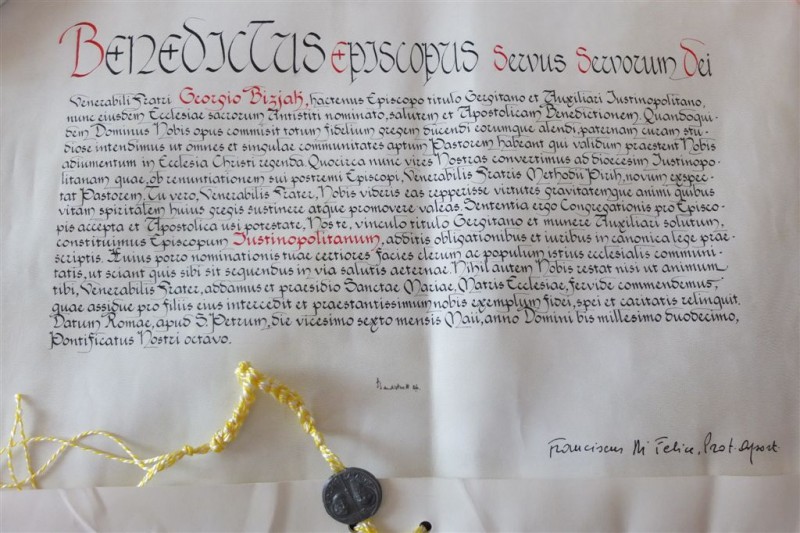 BENEDICTUS EPISCOPUS Servus Servorum Dei
Venerabili Fratri Georgio Bizjak, hactenus Episcopo titulo Gergitano et Auxiliari Iustinopolitano,
nunc eiusdem Ecclesiae sacrorum Antistiti nominato, salutem et Apostolicam Benedictionem. Quandoqui-
dem Dominus Nobis opus commisit totum fidelium gregem ducendi eorumque alendi, paternam curam stu-
diose intendimus ut omnes et singulae communitates aptum Pastorem habeant qui validum praestent Nobis
adiumentum in Ecclesia Christi regenda. Quocirca nunc vires Nostras convertimus ad dioecesim Iustinopo-
litanam quae, ob renuntiationem sui postremi Episcopi, Venerabilis Fratris Methodii Pirih, novum exspec-
tat Pastorem. Tu vero, Venerabilis Frater, Nobis videris eas repperisse virtutes gravitatemque animi quibus
vitam spiritalem huius gregis sustinere atque promovere valeas. Sententia ergo Congregationis pro Episco-
pis accepta et Apostolica usi potestate, Nos te, vinculo titulo Gergitano et munere Auxiliari solutum,
constituimus Episcopum Iustinopolitanum, additis obligationibus et iuribus in canonica lege prae-
scriptis. Huius porro nominationis tuae certiores facies clerum ac populum istius ecclesialis communi-
tatis, ut sciant quis sibi sit sequendus in via salutis aeternae. Nihil autem Nobis restat nisi ut animum
tibi, Venerabilis Frater, addamus et praesidio Sanctae Mariae, Matris Ecclesiae, fervide commendemus,
quae assidue pro filiis eius intercedit et praestantissimum nobis exemplum fidei, spei et caritatis relinquit.
Datum Romae, apud S. Petrum, die vicesimo sexto mensis Maii, anno Domini bis millesimo duodecimo,
Pontificatus Nostri octavo.
Franciscus Di Felice, Prot. Apost.